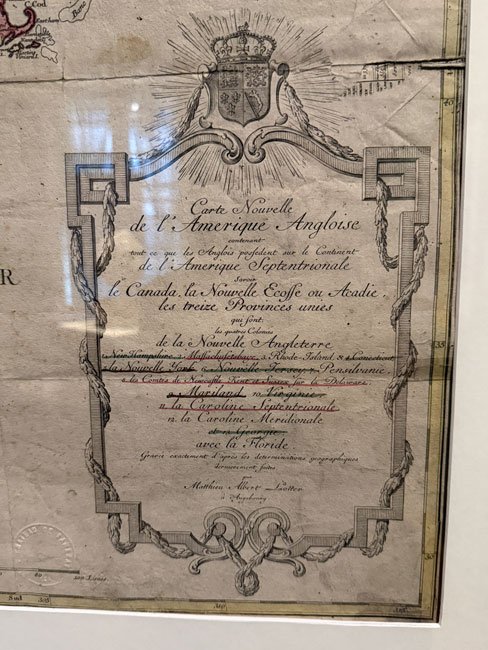 C. Cod
R
Carte Nouvelle
de l'Amerique Angloise
contenant
tout ce que les Anglois possedent sur le Continent
de l'Amerique Septentrionale
savoir
le Canada, la Nouvelle Ecosse ou Acadie,
les treize Provinces unies
qui sont:
les quatres Colonies
de la Nouvelle Angleterre
1 New Hampshire, 2 Massachusetsbaye, 3 Rhode-Island & 4 Conecticut
la Nouvelle York 6 Nouvelle Jersey 7 Pensilvanie,
8 les Comtes de Newcastle Kent et Sussex sur la Delaware,
9 Mariland 10 Virginie
11 la Caroline Septentrionale
12 la Caroline Meridionale
et 13 Georgie
avec la Floride
Gravée exactement d'après les determinations geographiques
dernierement faites
par
Matthieu Albert Lotter
à Augsbourg
40
35
30
Sud
305
310